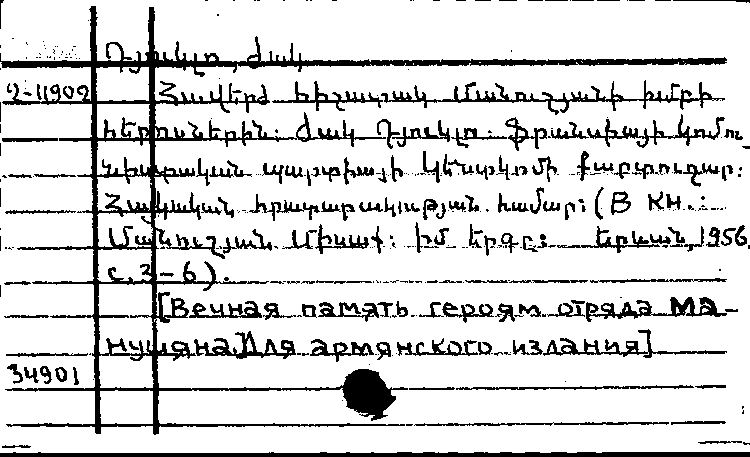 Դյուկլո, Ժակ
2-11902 Հավերժ հիշատակ Մանուշյանի խմբի
հերոսներին: Ժակ Դյուկլո: Ֆրանսիայի կոմու-
նիստական պարտիայի կենտկոմի քարտուղար:
Հայկական հրատարակության համար: (В кн.:
Մանուշյան Միսաք: Իմ երգը: Երևան, 1956,
с. 3-6).
[Вечная память героям отряда Ма-
нушяна. Для армянского издания]
34901